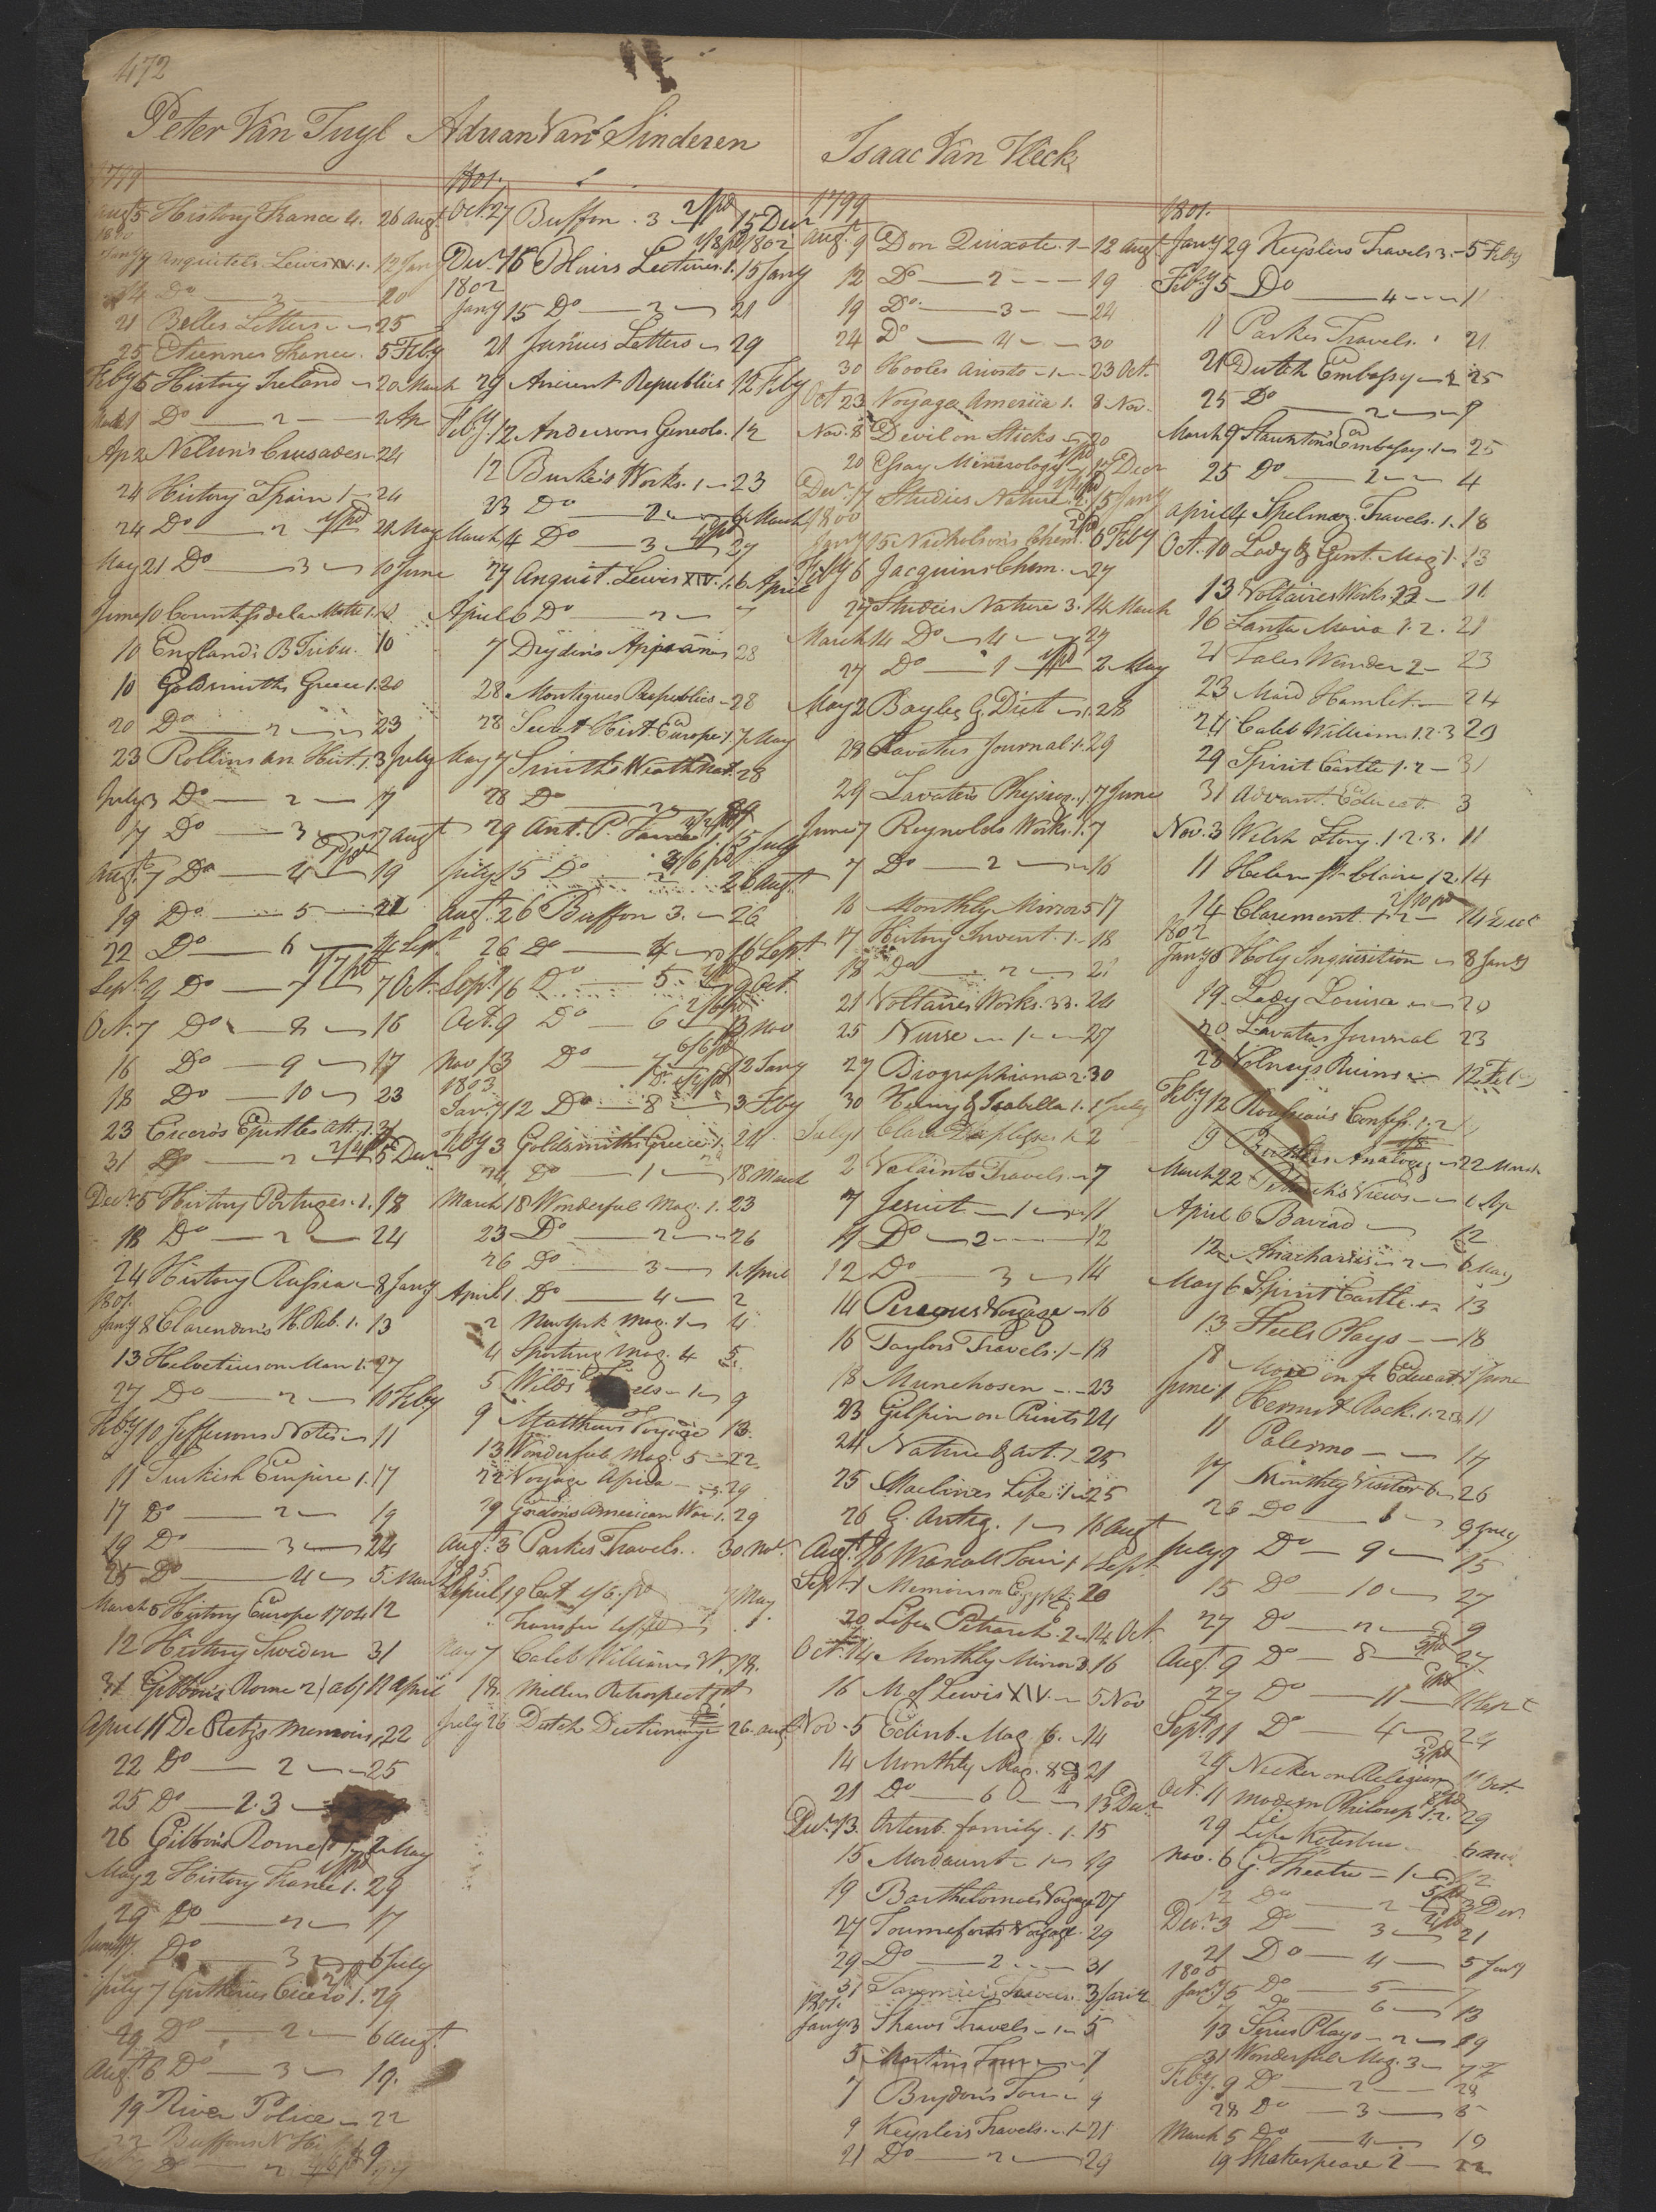 472
Peter Van Tuyl
Adrian Van Sinderen
Isaac Van Vleck
1799
Augt 5 History France 4. 26 augt.
1800
Jany 7 Anquitels Lewis XIV. 1. 12 Jany
Do 2 20
21 Belles Letters 25
25 Etiennes France. 5 Feby
Feby 5 History Ireland 20 March
Do 2 2 Ap
Ap 2 Nelson's Crusades 24
24 History Spain 1 24
24 Do 2 21 May
May 21 Do 3 10 June
June 10 Countess de la Motte 1.
10 England's B Tribu. 10
10 Goldsmiths Greece 1. 20
20 Do 2 23
23 Rollins an. Hist. 1. 3 July
July 3 Do 2 7
7 Do 3 7 augt
Augt. 7 Do 4 19
19 Do 5 22
22 Do 6 4 Sept
Sept. 4 Do 7 7 Oct.
Oct. 7 Do 8 16
16 Do 9 17
18 Do 10 23
23 Cicero's Epistles Att. 1. 31
31 Do 2 5 Decr
Decr 5 History Portugese. 1. 18
18 Do 2 24
24 History Russia 8 Jany
1801.
Jany 8 Clarendon's H. Reb. 1. 13
13 Helvetius on Man 1. 27
27 Do 2 10 Feby
Feby 10 Jeffersons Notes 11
11 Turkish Empire 1. 17
17 Do 2 19
19 Do 3 24
25 Do 4 5 March
March 5 History Europe 1704 12
12 History Sweden 31
31 Gibbon's Rome 2 abj 11 April
April 11 De Retz's Memoirs 1 22
22 Do 2 25
25 Do 2.3
26 Gibbon's Rome 2 May
May 2 History France 1. 29
29 Do 2 17
June 17. Do 3 6 July
July 7 Guthries Cicero 1. 29
29 Do 2 6 augt.
Augt. 6 Do 3 19.
19 River Police 22
22 Buffons N. Hist 9
Do 2
1801.
Oct. 27 Buffon. 3 15 Decr
Decr. 15 Blairs Lectures. 1. 15 Jany
1802
Jany 15 Do 2 21
21 Junius Letters 29
29 Ancient Republics 12 Feby
Feby. 12 Andersons Geneolo. 12
12 Burke's Works. 1 23
23 Do 2 4 March
March 4 Do 3 27
27 Anquit. Lewis XIV. 1. 6 April
April 6 Do 2 7
7 Dryden's 28
28 Montigues Republics 28
28 Secret Hist. Europe. 1. 7 May
May 7 Smiths Wealth Nat. 28
28 Do 2 29
29 Ant. P. 1 15 July
July 15 Do 2 26 Augt.
Augt. 26 Buffon 3. 26
26 Do 4 16 Sept.
Sept. 16 Do 5. 9 Oct.
Oct. 9 Do 6 13 Nov
Nov 13 Do 7 12 Jany
1803
Jany 12 Do 8 3 Feby
Feby 3 Goldsmiths Greece 1. 24
24 Do 1 18 March
March 18 Wonderful Mag. 1. 23
23 Do 2 26
26 Do 3 1 April
April 1. Do 4 2
2 New York Mag. 1 4
4 Sporting Mag. 4 5.
5 Wilds 1 9
9 Matthews Voyage 13.
13 Wonderful Mag. 5 22
22 Voyage Africa 29
29 Gordons American War 1. 29
Augt. 3 Parkes Travels. 30 Nov.
1805
April 19 Cat 1/6 pd 7 May
Transfer
May 7 Caleb Williams 18.
18. Millers Retrospect 1
July 26 Dutch Dictionary 26. Augt.
1799
Augt. 9 Don Quixote. 1 12 Augt.
12 Do 2 19
19 Do 3 24
24 Do 4 30
30 Hooles Ariosto 1 23 Oct.
Oct 23 Voyage America 1. 8 Nov.
Nov. 8 Devil on Sticks 20
20 Essay Minerology 17 Decr
Decr. 17 Studies Nature 2. 15 Jany
1800
Jany 15 Nicholson's Chem. 6 Feby
Feby 6 Jacquins Chem. 27
27 Studies Nature 3. 14 March
March 14 Do 4 27
27 Do 1 2 May
May 2 Bayles G. Dict 1. 28
28 Lavaters Journal 1. 29
29 Lavaters Physiog. 1. 7 June
June 7 Reynolds Works. 1. 7
7 Do 2 16
16 Monthly Mirror 5 17
17 History Invent. 1 18
18 Do 2 21
21 Voltaires Works. 33. 24
25 Nurse 1 27
27 Biographiana 2. 30
30 Henry & Isabella 1. 1 July
July 1 Clara Duplesses 1. 2
2 Valaints Travels 7
7 Jesuit 1 11
11 Do 2 12
12 Do 3 14
14 Perouse Voyage 16
16 Taylors Travels. 1 18
18 Munchosen 23
23 Gilpin on Prints 24
24 Nature & Art. 1 25
25 Macklines Life. 1 25
26 G. Antiq. 1 16 Augt
Augt. 16 Wraxals Tour 1 1 Sept.
Sept. 1 Memoirs on Egypt 20
20 Life Petrarch. 2 14 Oct.
Oct. 14 Monthly Mirror 3. 16
16 M. of Lewis XIV. 5 Nov
Nov. 5 Edinb. Mag. 6. 14
14 Monthly Mag. 8 21
21 Do 6 13 Decr
Decr 13. Ortenb. family. 1. 15
15 Mordaunt 1 19
19 Barthelomaes Voyage 27
27 Tourneforts Voyage. 29
29 Do 2 31
31 Taverniers Travels 3 Jany
1801.
Jany 3 Shaws Travels 1 5
5 Martins Tour 7
7 Brydon's Tour 9
9 Keyslers Travels 1 21
21 Do 2 29
1801.
Jany 29 Keyslers Travels 3. 5 Feby
Feby 5 Do 4 11
11 Parkes Travels. 21
21 Dutch Embassy 1 25
25 Do 2 9
March 9 Staunton's Embassy. 1 25
25 Do 2 4
April 4 Travels. 1. 18
Oct. 10 Lady & Gent. Mag 1. 13
13 Voltaires Works. 21
16 Santa Maria 1. 2. 21
21 Tales Wonder 2 23
23 Maid Hamlet 24
24 Caleb William 1.2.3 29
29 Spirit Castle 1.2 31
31 Advant. Educat. 3
Nov. 3 Welsh Story. 1.2.3. 11
11 Helen St. Claire 1 2. 14
14 Claremont 1. 2 14 Decr
1802
Jany 6 Holy Inquisition 8 Jany
19. Lady Louisa 20
20 Lavaters Journal 23
23 Volneys Ruins 12 Feb
Feby 12 Rousseau's Confess. 1. 2
19 Butlers Analogy 22 March
March 22 Views 6 Ap
April 6 Baviad 12
12 Anacharsis 2 6 May
May 6 Spirit Castle 13
13 Steels Plays 18
18 More on fe Educat. 1 June
June 1 Hermit Rock. 1.2.3 11
11 Palermo 17
17 Monthly Visitor 6 26
26 Do 1 9 July
July 9 Do 9 15
15 Do 10 27
27 Do 2 9
Augt. 9 Do 8 27
27 Do 11 11 Sept
Sept. 11 Do 4 29
29 Necker on Religion 11 Oct.
Oct. 11 Modern Philosop. 1. 2. 29
29 Life Kotezbue 6 Nov.
Nov. 6 G. Theatre 1 12
12 Do 2 3 Decr.
Decr. 3 Do 3 21
21 Do 4 5 Jany
1805
Jany 5 Do 5 7
7 Do 6 13
13 Plays 2 19
31 Wonderful Mag. 3 7
Feby. 9 Do 2 28
28 Do 3 5
March 5 Do 4 19
19 Shakespeare 2 22